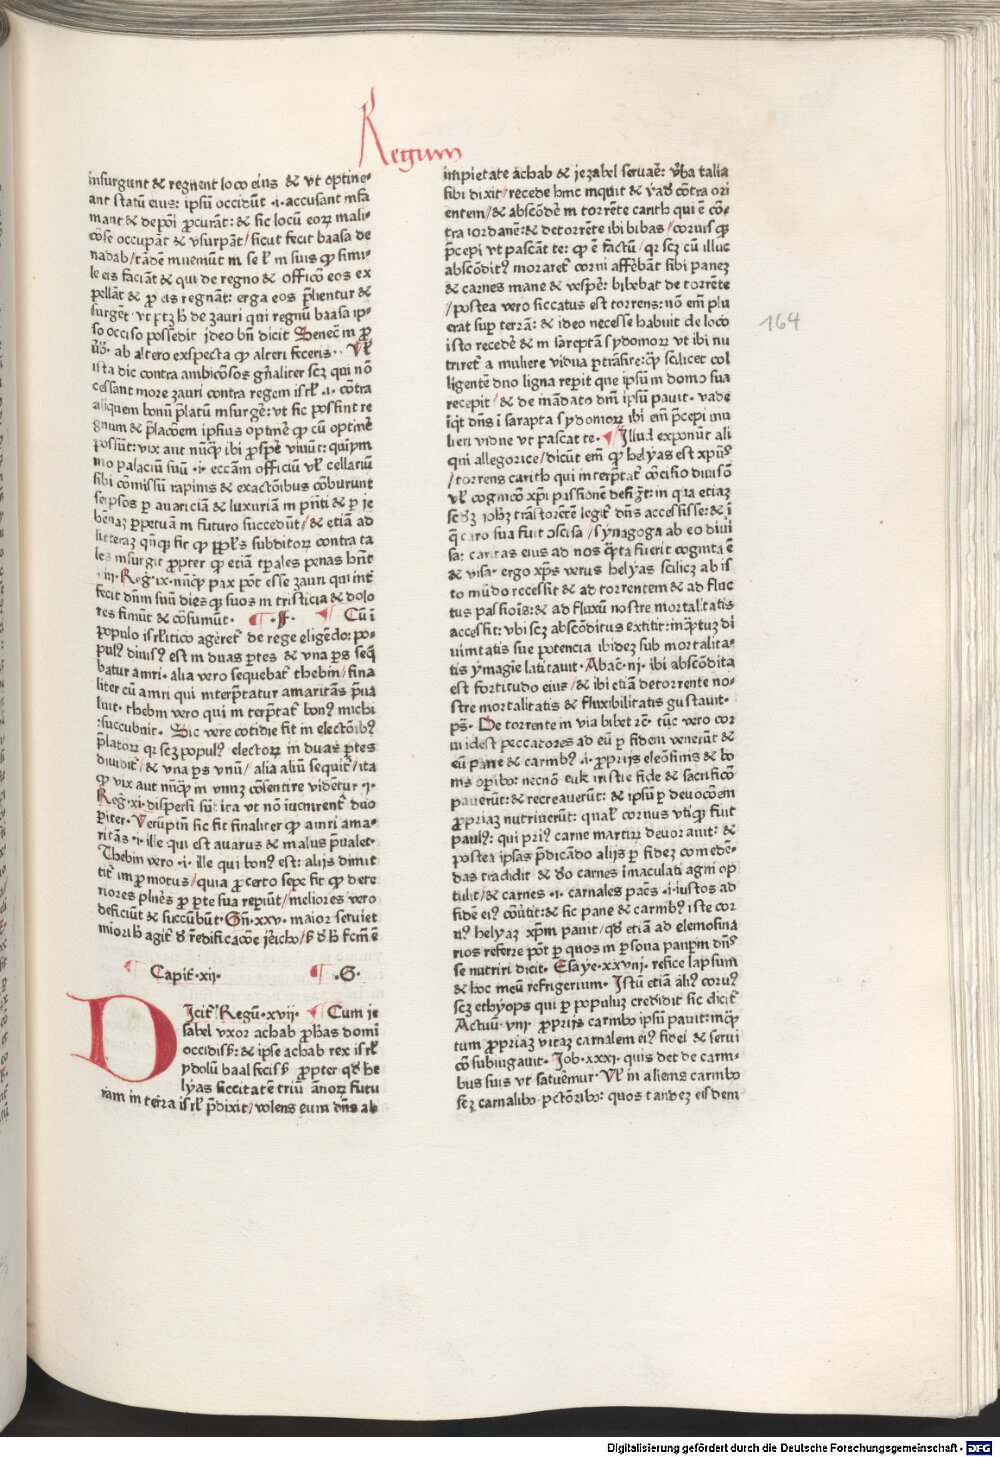 Regum
insurgunt & regnent loco eius & vt optine-
ant statū eius: ipsū occidūt ·i· accusant infa
mant & depōi ꝓcurāt: & sic locū eoꝝ mali-
cōse occupāt & vsurpāt/ sicut fecit baasa de
nadab/ tādē inueniūt in se ł in suis ꝙ simi-
le eis faciāt & qui de regno & officō eos ex
pellāt & ꝓ eis regnāt: erga eos
surgēt vt de zauri qui regnū baasa ip-
so occiso possedit ideo bn̄ dicit Senec̄ in ꝓ
ab altero exspecta ꝙ alteri feceris· Vł
ista dic contra ambicōsos gn̄aliter scꝫ qui nō
cessant more zauri contra regem isrł ·i· cōtra
aliquem bonū p̄latū insurgē: vt sic possint re
gnum & p̄lacōem ipsius optinē ꝙ cū optinē
possūt: vix aut nūꝙ ibi ꝓspē viuūt: quiym
mo palaciū suū ·i· eccām officiū vł cellariū
sibi cōmissū rapinis & exactōibus cōburunt
seipsos ꝑ auariciā & luxuriā in pn̄ti & ꝑ ie
hēnaꝫ ꝑpetuā in futuro succedūt/ & etiā ad
litteraꝫ qn̄ꝙ fit ꝙ subditoꝝ contra ta
les insurgit ꝓpter ꝙ etiā tꝑales penas hn̄t
iii·Reg·ix·nūꝙ pax pōt esse zauri qui int̄
fecit dn̄m suū dies ꝙ suos in tristicia & dolo
res finiūt & cōsumūt· ¶ ·F· ¶ Cū ī
populo isrłitico ageret̄ de rege eligēdo: po-
pulꝰ diuisꝰ est in duas ꝑtes & vna ꝑs seq̄
batur amri· alia vero sequebat̄ thebni/ fina
liter cū amri qui interp̄tatur amaritās p̄ua
luit· thebni vero qui interp̄tat̄ bonꝰ michi
succubuit· Sic vere cotidie fit in electōibꝰ
p̄latoꝝ qꝛ scꝫ populꝰ electoꝝ in duas ꝑtes
diuidit̄/ & vna ꝑs vnū/ alia aliū sequit̄/ ita
ꝙ vix aut nūꝙ in vnuꝫ cōsentire vident̄ ·i·
Reg·xi·dispersi sūt ita vt nō iuenirent̄ duo
ꝑiter· Veruptn̄ sic fit finaliter ꝙ amri ama-
ritās ·i· ille qui est auarus & malus p̄ualet·
Thebni vero ·i· ille qui bonꝰ est: alijs dimit
tit̄ imꝓmotus/ quia ꝓ certo sepe fit ꝙ dete
riores plūes ꝓ ꝑte sua reperiūt/ meliores vero
deficiūt & succūbūt· Gn̄·xxv· maior seruiet
miori
agit̄ redificacōe jericho/
¶ Capit̄·xii· ¶ ·G·
DIcit̄ Regū·xvij· ¶ Cum je
sabel vxor achab ꝓphas domī
occidisꝫ: & ipse achab rex isrł
ydolū baal fecisꝫ ꝓpter qd̄ he
lyas siccitatē triū ānoꝝ futu
ram in terra isrł p̄dixit/ volens eum dn̄s ab
impietate achab & jezabel seruaē: v̄ba talia
sibi dixit/ recede hinc inquit & vad̄ cōtra ori
entem/ & abscōdē in torrēte carith qui ē cō-
tra iordanē: & de torrēte ibi bibas/ coruisꝙ
p̄cepi vt pascāt te: ꝙ ē factū/ qꝛ scꝫ cū illuc
abscōdit mozaret̄ corui affēbāt sibi paneꝫ
& carnes mane & vespē: bibebat de torrēte
/postea vero siccatus est torrens: nō em̄ plu
erat suꝑ terrā: & ideo necesse habuit de loco
isto recedē & in sareptā sydonioꝝ vt ibi nu
triret̄ a muliere vidua ꝑtrāsire: scilicet col
ligente duo ligna reperit que ipsū in domo sua
recepit/ & de mādato dn̄i ipsū pauit· vade
īqt̄ dn̄s ī sarapta sydonioꝝ ibi em̄ p̄cepi mu
lieri vidue vt pascat te· ¶ Illud exponūt ali
qui allegorice/ dicūt em̄ ꝙ helyas est xpūs
/torrens carith qui interp̄tat̄ cōcisio diuisō
vł cognicō xp̄i passionē desigt̄: in qua etiaꝫ
iohꝫ trās torrētē legit̄ dn̄s accessisse: & ī
q̄ caro sua fuit ꝯscisa/ synagoga ab eo diui
sa: caritas eius ad nos fuerit cognita ē
& visa· ergo xp̄s verus helyas sciliꝫ ab is
to mūdo recessit & ad torrentem & ad fluc
tus passiōis: & ad fluxū nostre mortalitatis
accessit: vbi scꝫ abscōditus extitit: di
uinitatis sue potencia ibideꝫ sub mortalita-
tis ymagīe latitauit· Abac̄·iij· ibi abscōdita
est fortitudo eius/ & ibi etiā de torrente no-
stre mortalitatis & fluxibilitatis gustauit·
pṡ· De torrente in via bibet rc̄· tūc vero cor
ui idest peccatores ad eū ꝑ fidem venerūt &
eū pane & carnibꝰ ·i· ꝓprijs eleōsinis & bo
nis oꝑibꝰ: necnō eukaristie fide & sacrificō
pauerūt: & recreauerūt: & ipsū ꝑ deuocōem
ꝓpriaꝫ nutriuerūt: qual̄ coruus vtiꝙ fuit
paulꝰ: qui priꝰ carne martiꝝ deuorauit: &
postea ipsas p̄dicādo alijs ꝑ fideꝫ comedē-
das tradidit & carnes īmaculati agni op
tulit/ & carnes ·i· carnales paēs ·i· iustos ad
fidē eiꝰ cōūtit: & sic pane & carnibꝰ iste cor
uꝰ helyaꝫ xp̄m pauit/ qd̄ etiā ad elemosina
rios referre pōt ꝑ quos in ꝑsona pauperum dn̄s
se nutriri dicit· Esaye·xxviij· refice lapsum
& hoc meū refrigerium· Istū etiā coruꝰ
scꝫ ethyops qui ꝑ populuꝫ credidit sic dicit̄
Actuū·viij· ꝓprijs carnibꝰ ipsū pauit:
tum ꝓpriaꝫ vitaꝫ carnalem eiꝰ fidei & serui
cō subiugauit· Job·xxxi· quis det de carni-
bus suis vt saturemur· Vł in alienis carnibꝰ
scꝫ carnalibꝰ pctōribꝰ: quos tandeꝫ eisdem
164
Digitalisierung gefördert durch die Deutsche Forschungsgemeinschaft - DFG